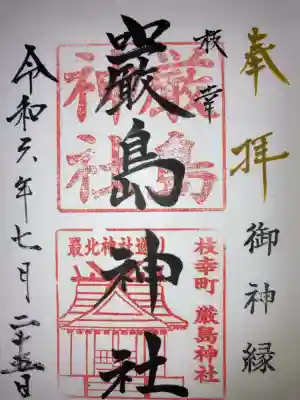 奉拝
御神縁
枝幸
厳島神社
厳島神社
最北神社巡り
枝幸町 厳島神社
令和六年七月二十五日